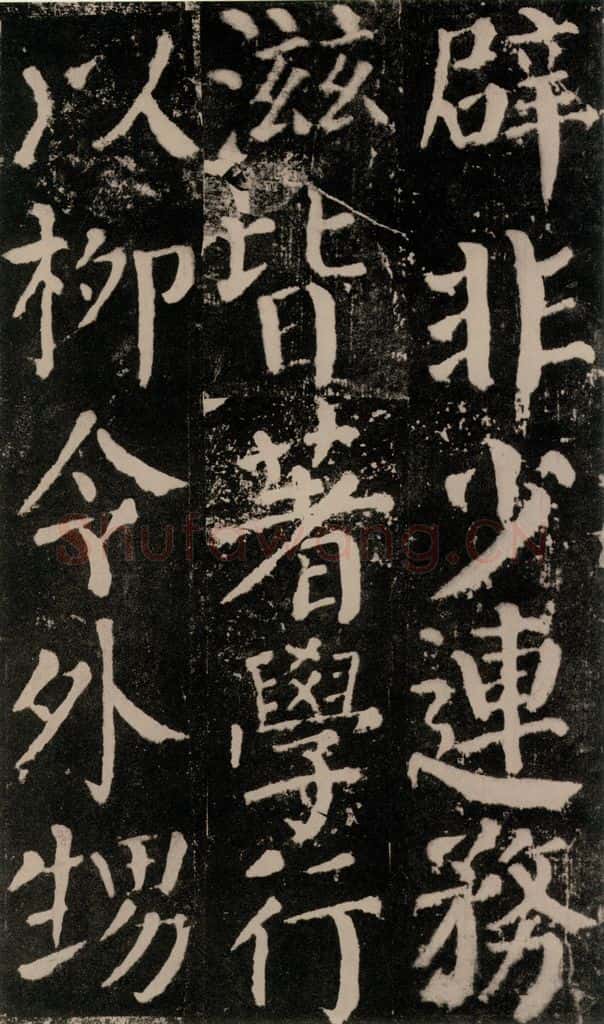 辟非少連務
滋皆著學行
以柳令外甥
Shufawang.CN